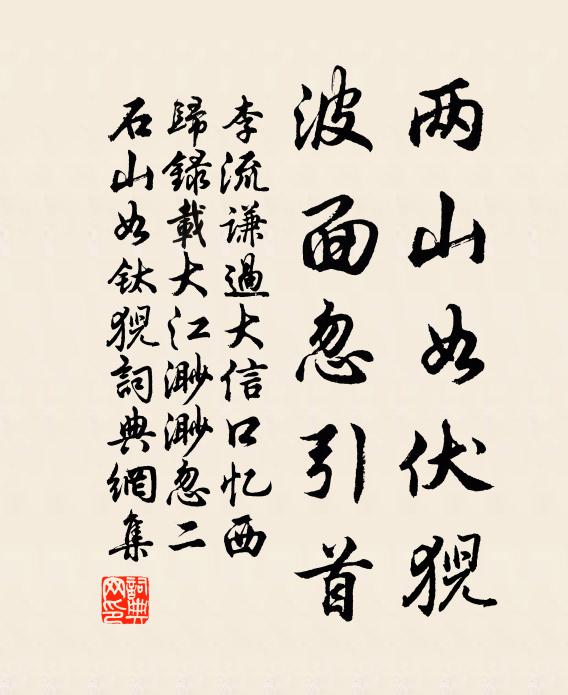 两山如伏猊
波面忽引首
李流谦過大信口忆西
歸錄載大江渺渺忽二
石山如鈦猊詞典網集
詞典網印